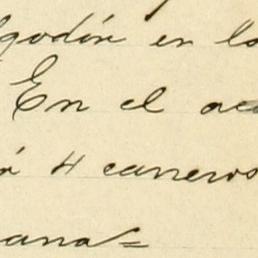 lgodón en lo
En el ac
á 4 carneros
ana=